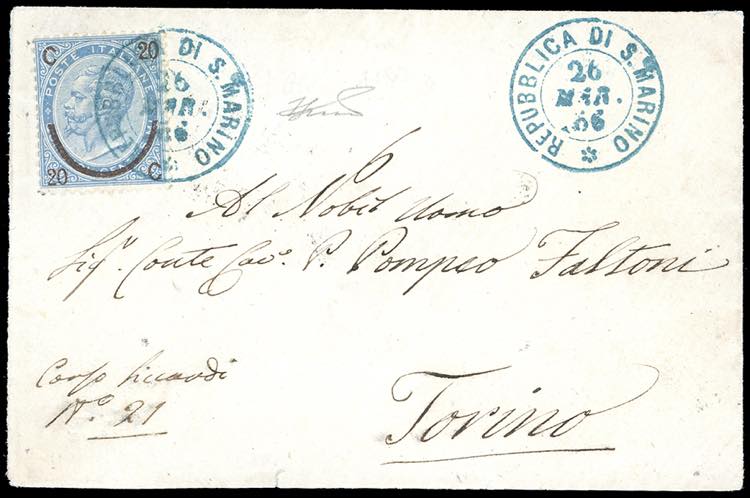 C 20
POSTE ITALIANE
20 C
REPUBBLICA DI S. MARINO
26
MAR.
66
REPUBBLICA DI S. MARINO
26
MAR.
66
Al Nobil Uomo
Sigr. Conte Cavo. P. Pompeo Faltoni
Corso Siccardi
No. 21
Torino